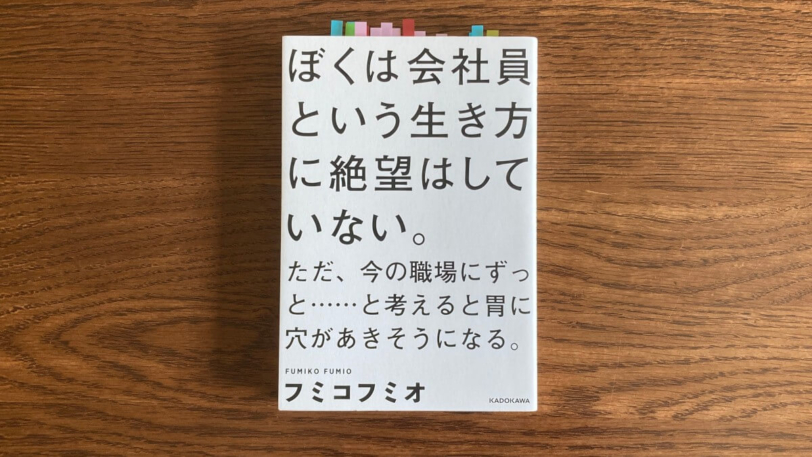 ぼくは会社員
という生き方
に絶望はして
いない。
ただ、今の職場にずっ
と……と考えると胃に
穴があきそうになる。
FUMIKO FUMIO
フミコフミオ
KADOKAWA